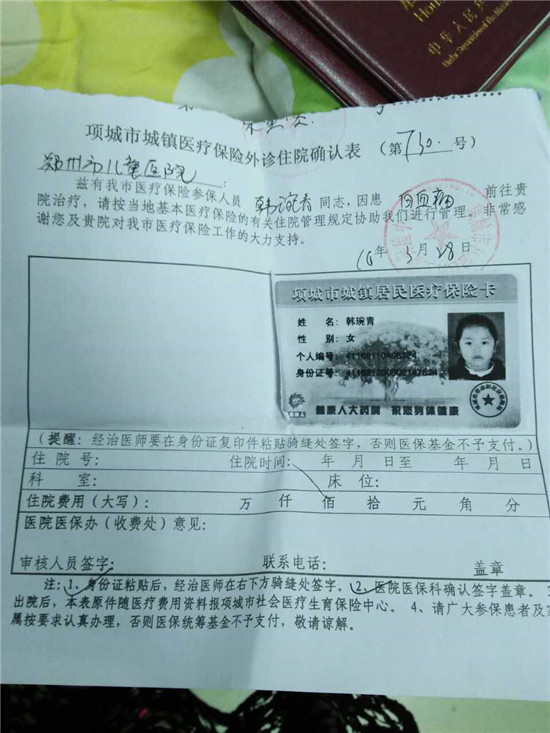 中华人民
项城市城镇医疗保险外诊住院确认表 (第730号)
郑州市儿童医院:
兹有我市医疗保险参保人员韩琬青同志,因患白血病前往贵
院治疗,请按当地基本医疗保险的有关住院管理规定协助我们进行管理。非常感
谢您及贵院对我市医疗保险工作的大力支持。
16年3月28日
项城市城镇居民医疗保险卡
姓 名:韩琬青
性 别:女
个人编号:
身份证号:
(提醒:经治医师要在身份证复印件粘贴骑缝处签字,否则医保基金不予支付。)
住 院 号: 住院时间: 年 月 日至 年 月 日
科 室: 床 位:
住院费用(大写): 万 仟 佰 拾 元 角 分
医院医保办(收费处)意见:
审核人员签字: 联系电话: 盖章
注:1、身份证粘贴后,经治医师在右下方骑缝处签字。2、医院医保科确认签字盖章。3
出院后,本表原件随医疗费用资料报项城市社会医疗生育保险中心。4、请广大参保患者及家
属按要求认真办理,否则医保统筹基金不予支付,敬请谅解。